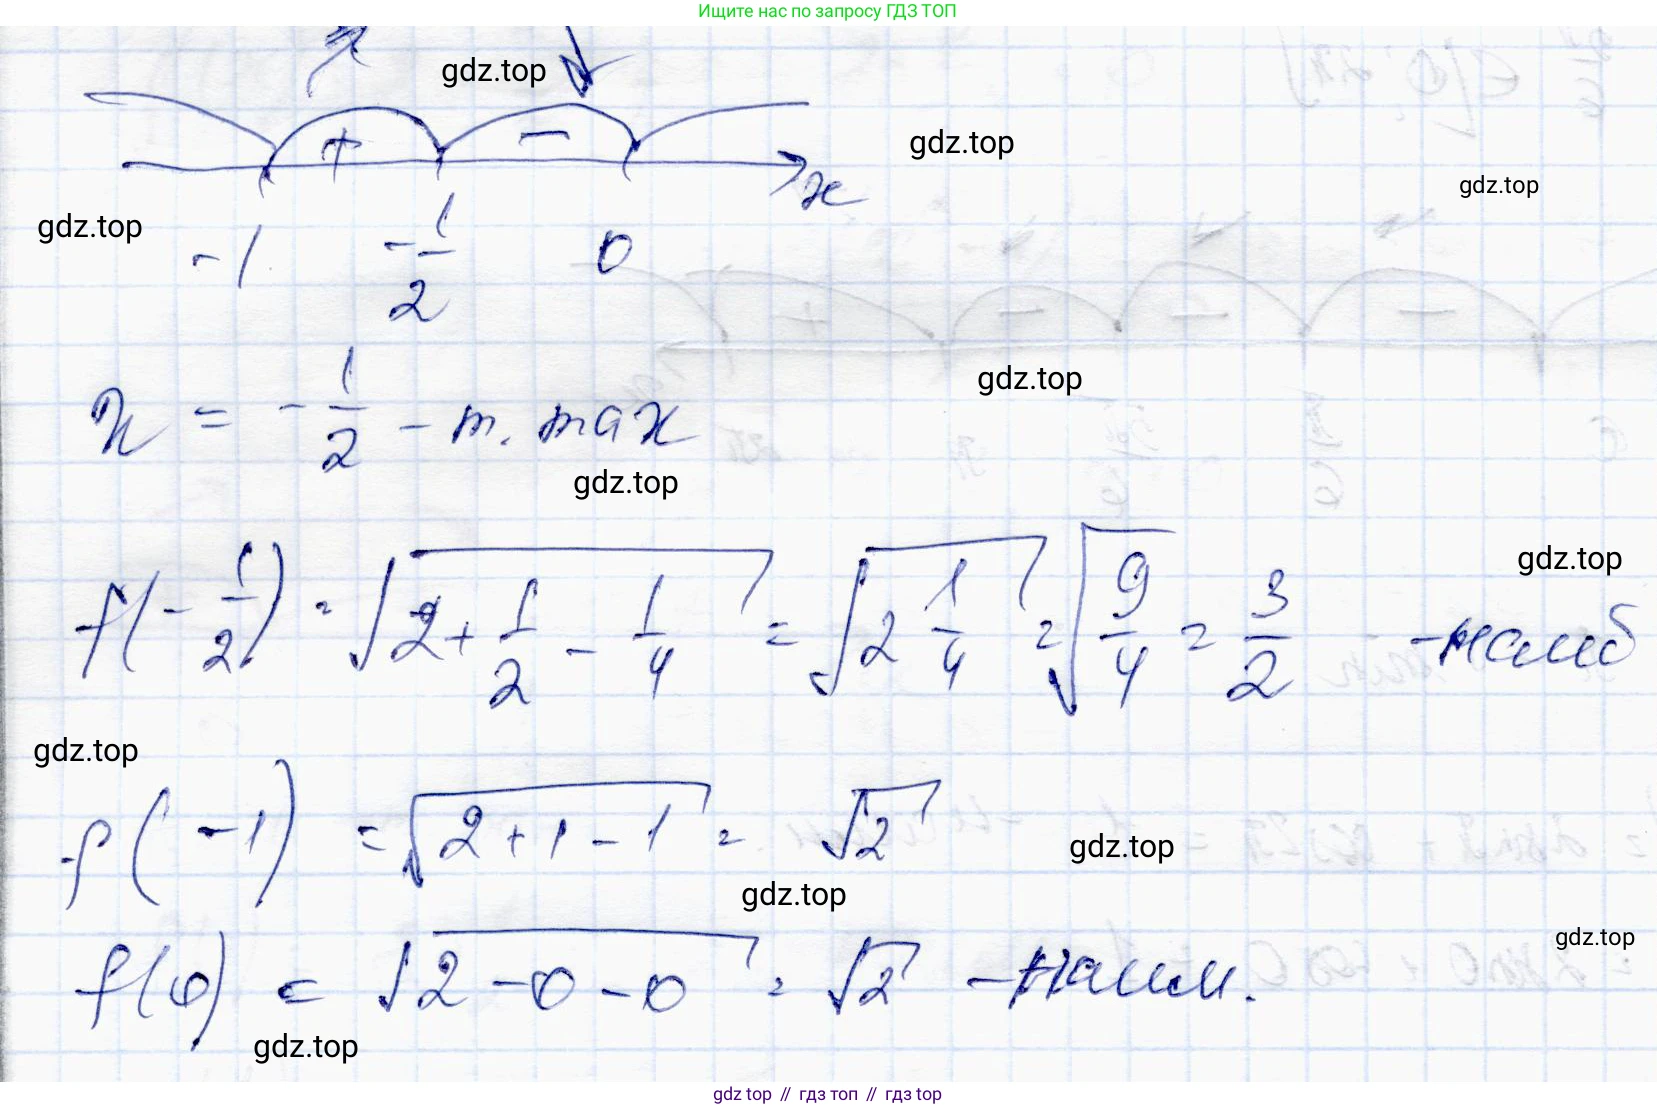 Ищите нас по запросу ГДЗ ТОП
gdz.top
+ −
gdz.top
x
gdz.top
gdz.top
-1 -1/2 0
gdz.top
x = -1/2 - т. max
gdz.top
gdz.top
f(-1/2) = √(2+1/2-1/4) = √(2 1/4) = √(9/4) = 3/2 - наиб
gdz.top
f(-1) = √(2+1-1) = √2
gdz.top
gdz.top
gdz.top
f(0) = √(2-0-0) = √2 - наим.
gdz.top
gdz top // гдз топ // гдз top